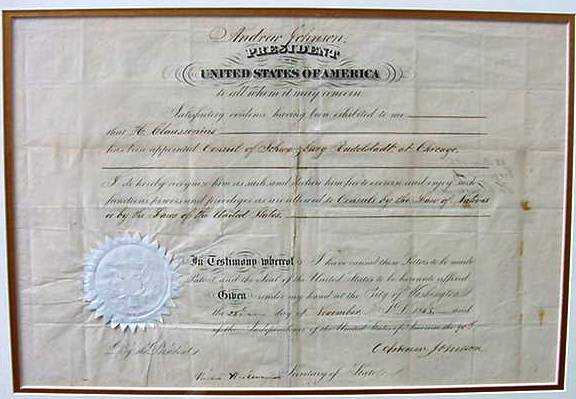 Andrew Johnson.
PRESIDENT
OF THE
UNITED STATES OF AMERICA
to all whom it may concern
Satisfactory evidence having been exhibited to me
that H. Claussenius
has been appointed Consul of Schwarzburg Rudolstadt at Chicago.
I do hereby recognize him as such and declare him free to exercise and enjoy such
functions powers and privileges as are allowed to Consuls by the Law of Nations
or by the Laws of the United States.
In Testimony whereof I have caused these Letters to be made
Patent and the Seal of the United States to be hereunto affixed
Given under my hand at the City of Washington
the day of November A.D. 1865, and
of the Independence of the United States of America, the 90th
By the President
Andrew Johnson
Secretary of State